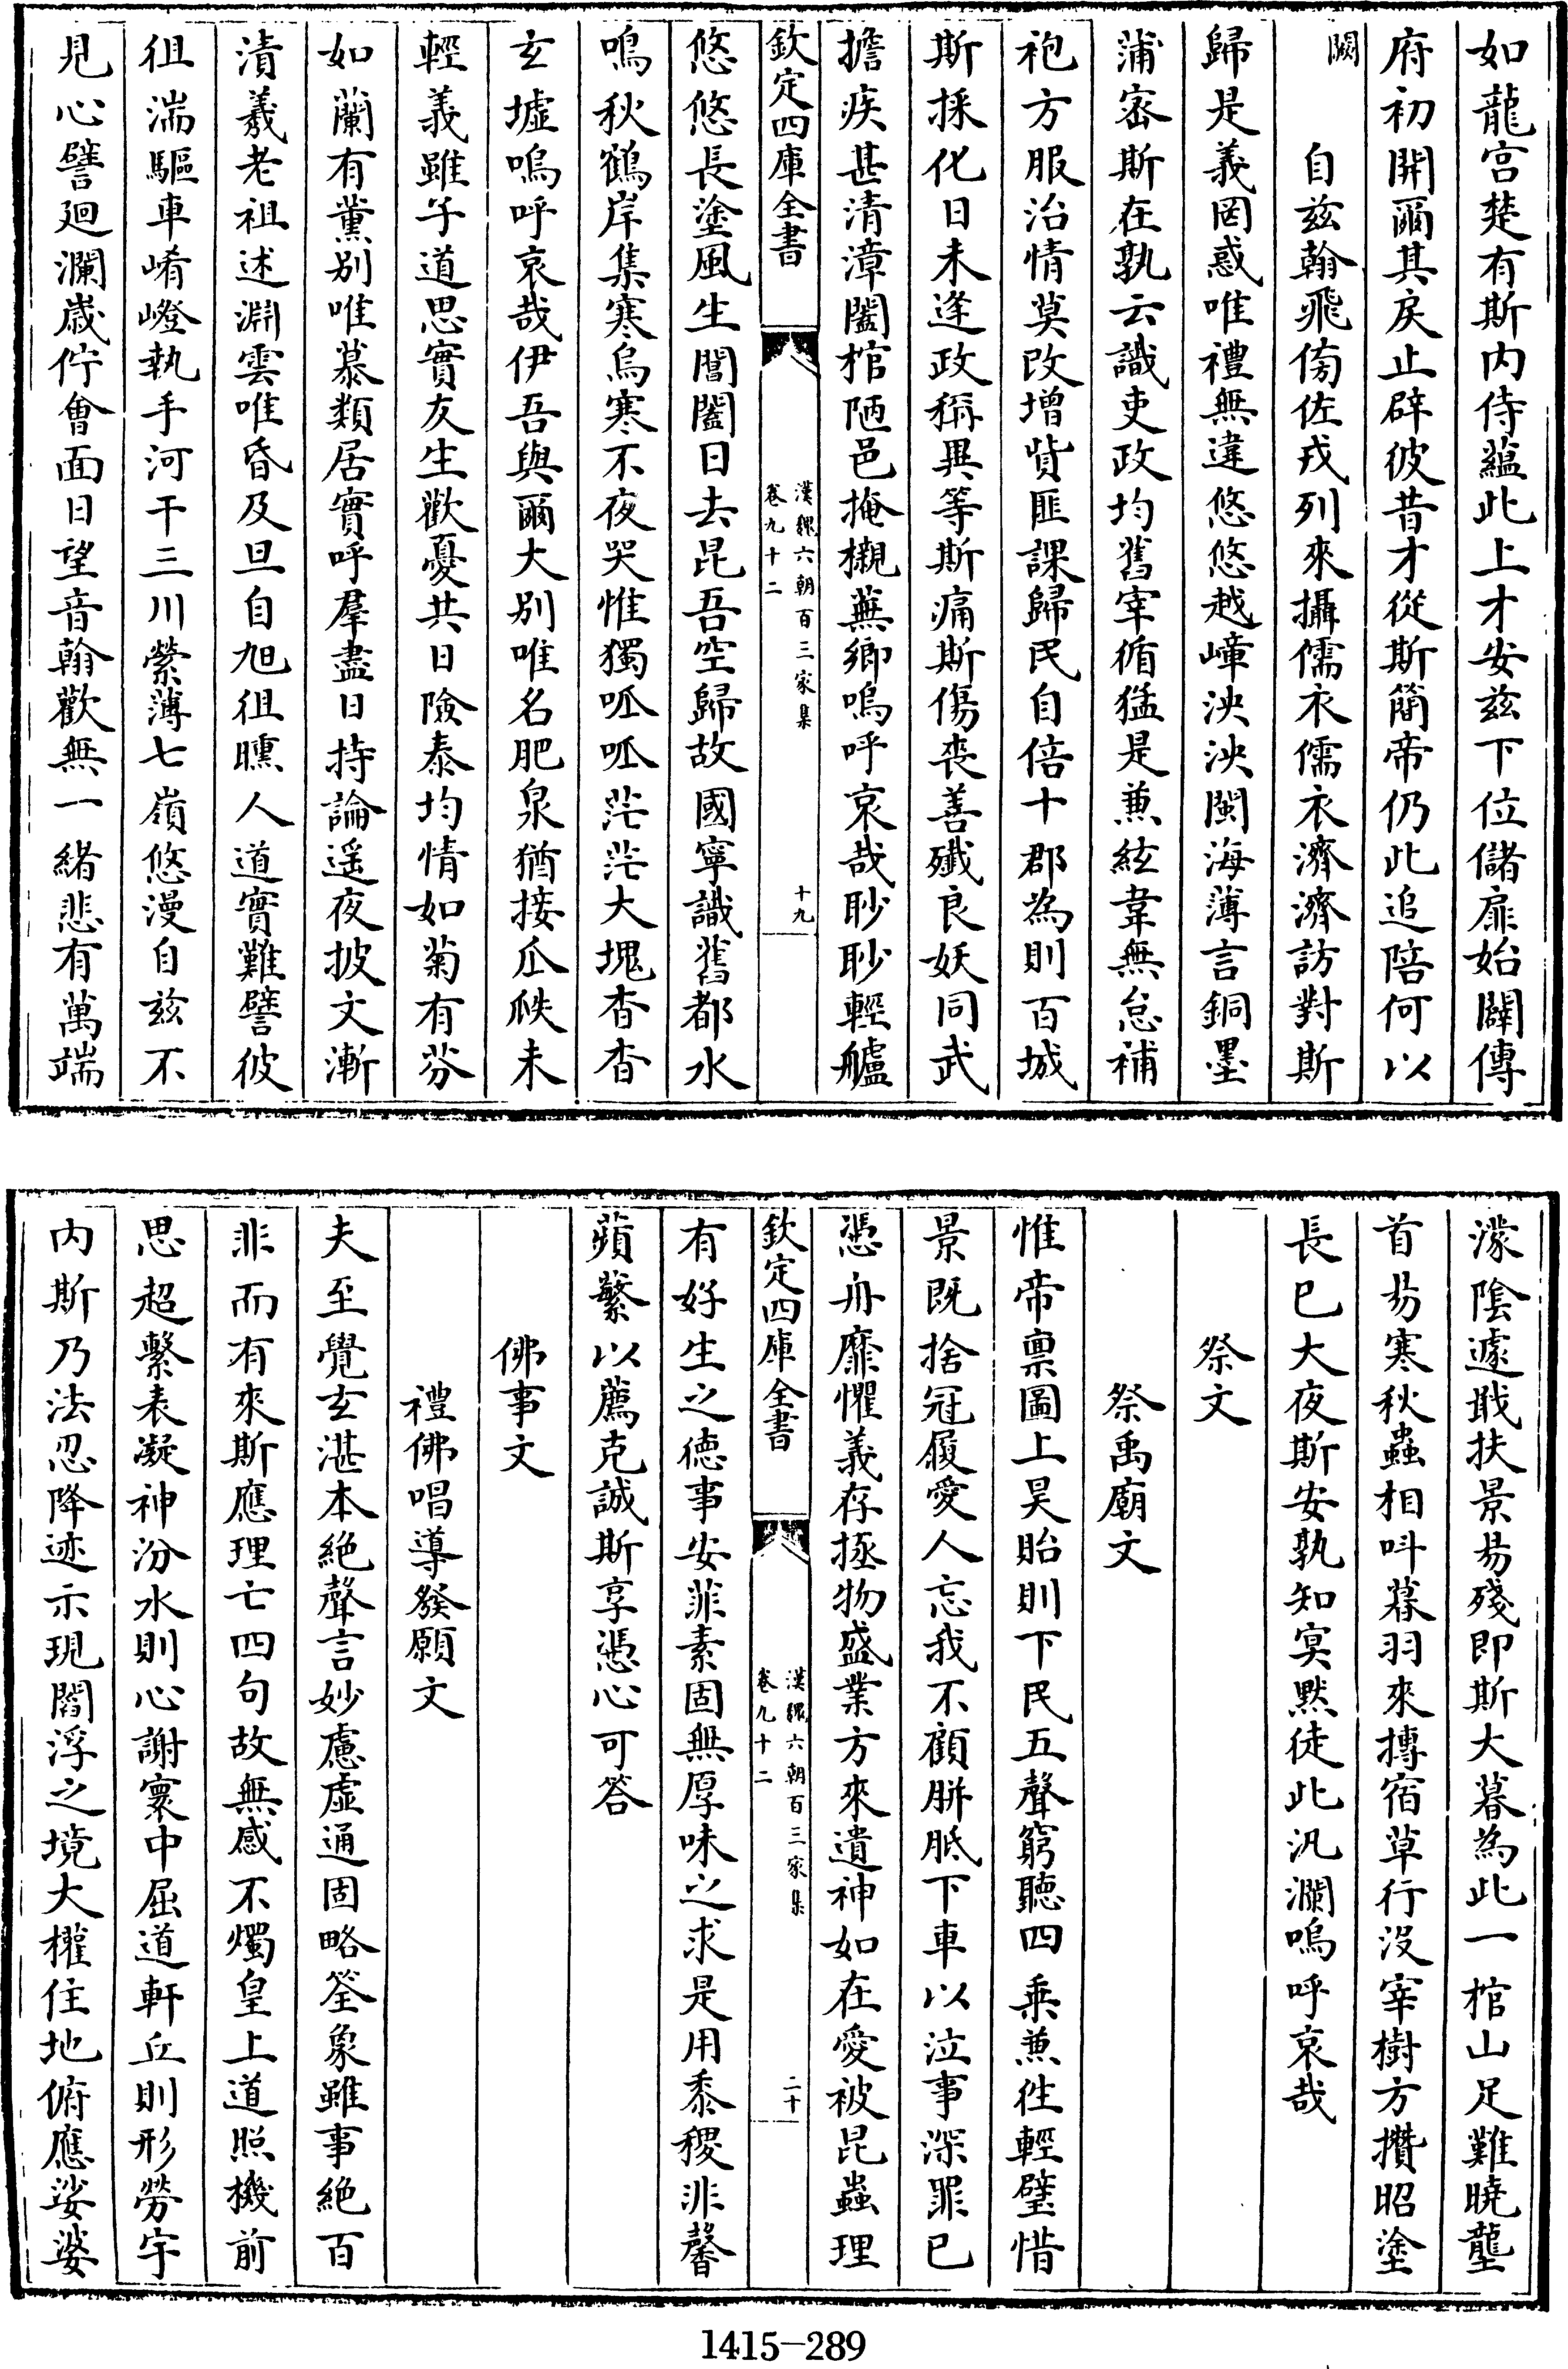 如龍宫楚有斯内侍蘊此上才安兹下位儲扉始闢傳
府初開爾其戾止辟彼昔才從斯簡帝仍此追陪何以
闕　自兹翰飛傍佐戎列來攝儒衣儒衣濟濟訪對斯
歸是義罔惑唯禮無違悠悠越嶂泱泱閩海薄言銅墨
蒲宻斯在孰云識吏政均舊宰循猛是兼絃韋無怠補
袍方服治情莫改增貲匪課歸民自倍十郡為則百城
斯採化日未逹政稱異等斯痛斯傷喪善殲良妖同武
擔疾甚清漳闔棺陋邑掩櫬蕪鄉嗚呼哀哉眇眇輕艫
欽定四庫全書
漢魏六朝百三家集
卷九十二
十九
悠悠長塗風生閶闔日去昆吾空歸故國寧識舊都水
鳴秋鶴岸集寒烏寒不夜哭惟獨呱呱茫茫大塊杳杳
玄墟嗚呼哀哉伊吾與爾大别唯名肥泉猶接瓜瓞未
輕義雖乍道思實友生歡憂共日險泰均情如菊有芬
如蘭有薰别唯慕類居實呼羣盡日持論遥夜披文漸
漬羲老祖述淵雲唯昏及旦自旭徂曛人道實難譬彼
徂湍驅車崤嶝執手河干三川縈薄七嶺悠漫自兹不
見心譬廻瀾嵗佇會面日望音翰歡無一緒悲有萬端
濛陰遽戢扶景易殘即斯大暮為此一棺山足難曉壟
首易寒秋蟲相呌暮羽來摶宿草行沒宰樹方攢昭塗
長已大夜斯安孰知冥黙徒此汎瀾嗚呼哀哉
祭文
祭禹廟文
惟帝禀圖上昊貽則下民五聲窮聽四乘兼徃輕璧惜
景既捨冠履愛人忘我不顧胼胝下車以泣事深罪已
憑舟靡懼義存拯物盛業方來遺神如在愛被昆蟲理
欽定四庫全書
漢魏六朝百三家集
卷九十二
二十
有好生之德事安菲素固無厚味之求是用黍稷非馨
蘋蘩以薦克誠斯享憑心可答
佛事文
禮佛唱導發願文
夫至覺玄湛本絶聲言妙慮虛通固略筌象雖事絶百
非而有來斯應理亡四句故無感不燭皇上道照機前
思超繫表凝神汾水則心謝寰中屈道軒丘則形勞宇
内斯乃法忍降迹示現閻浮之境大權住地俯應娑婆
1415-289